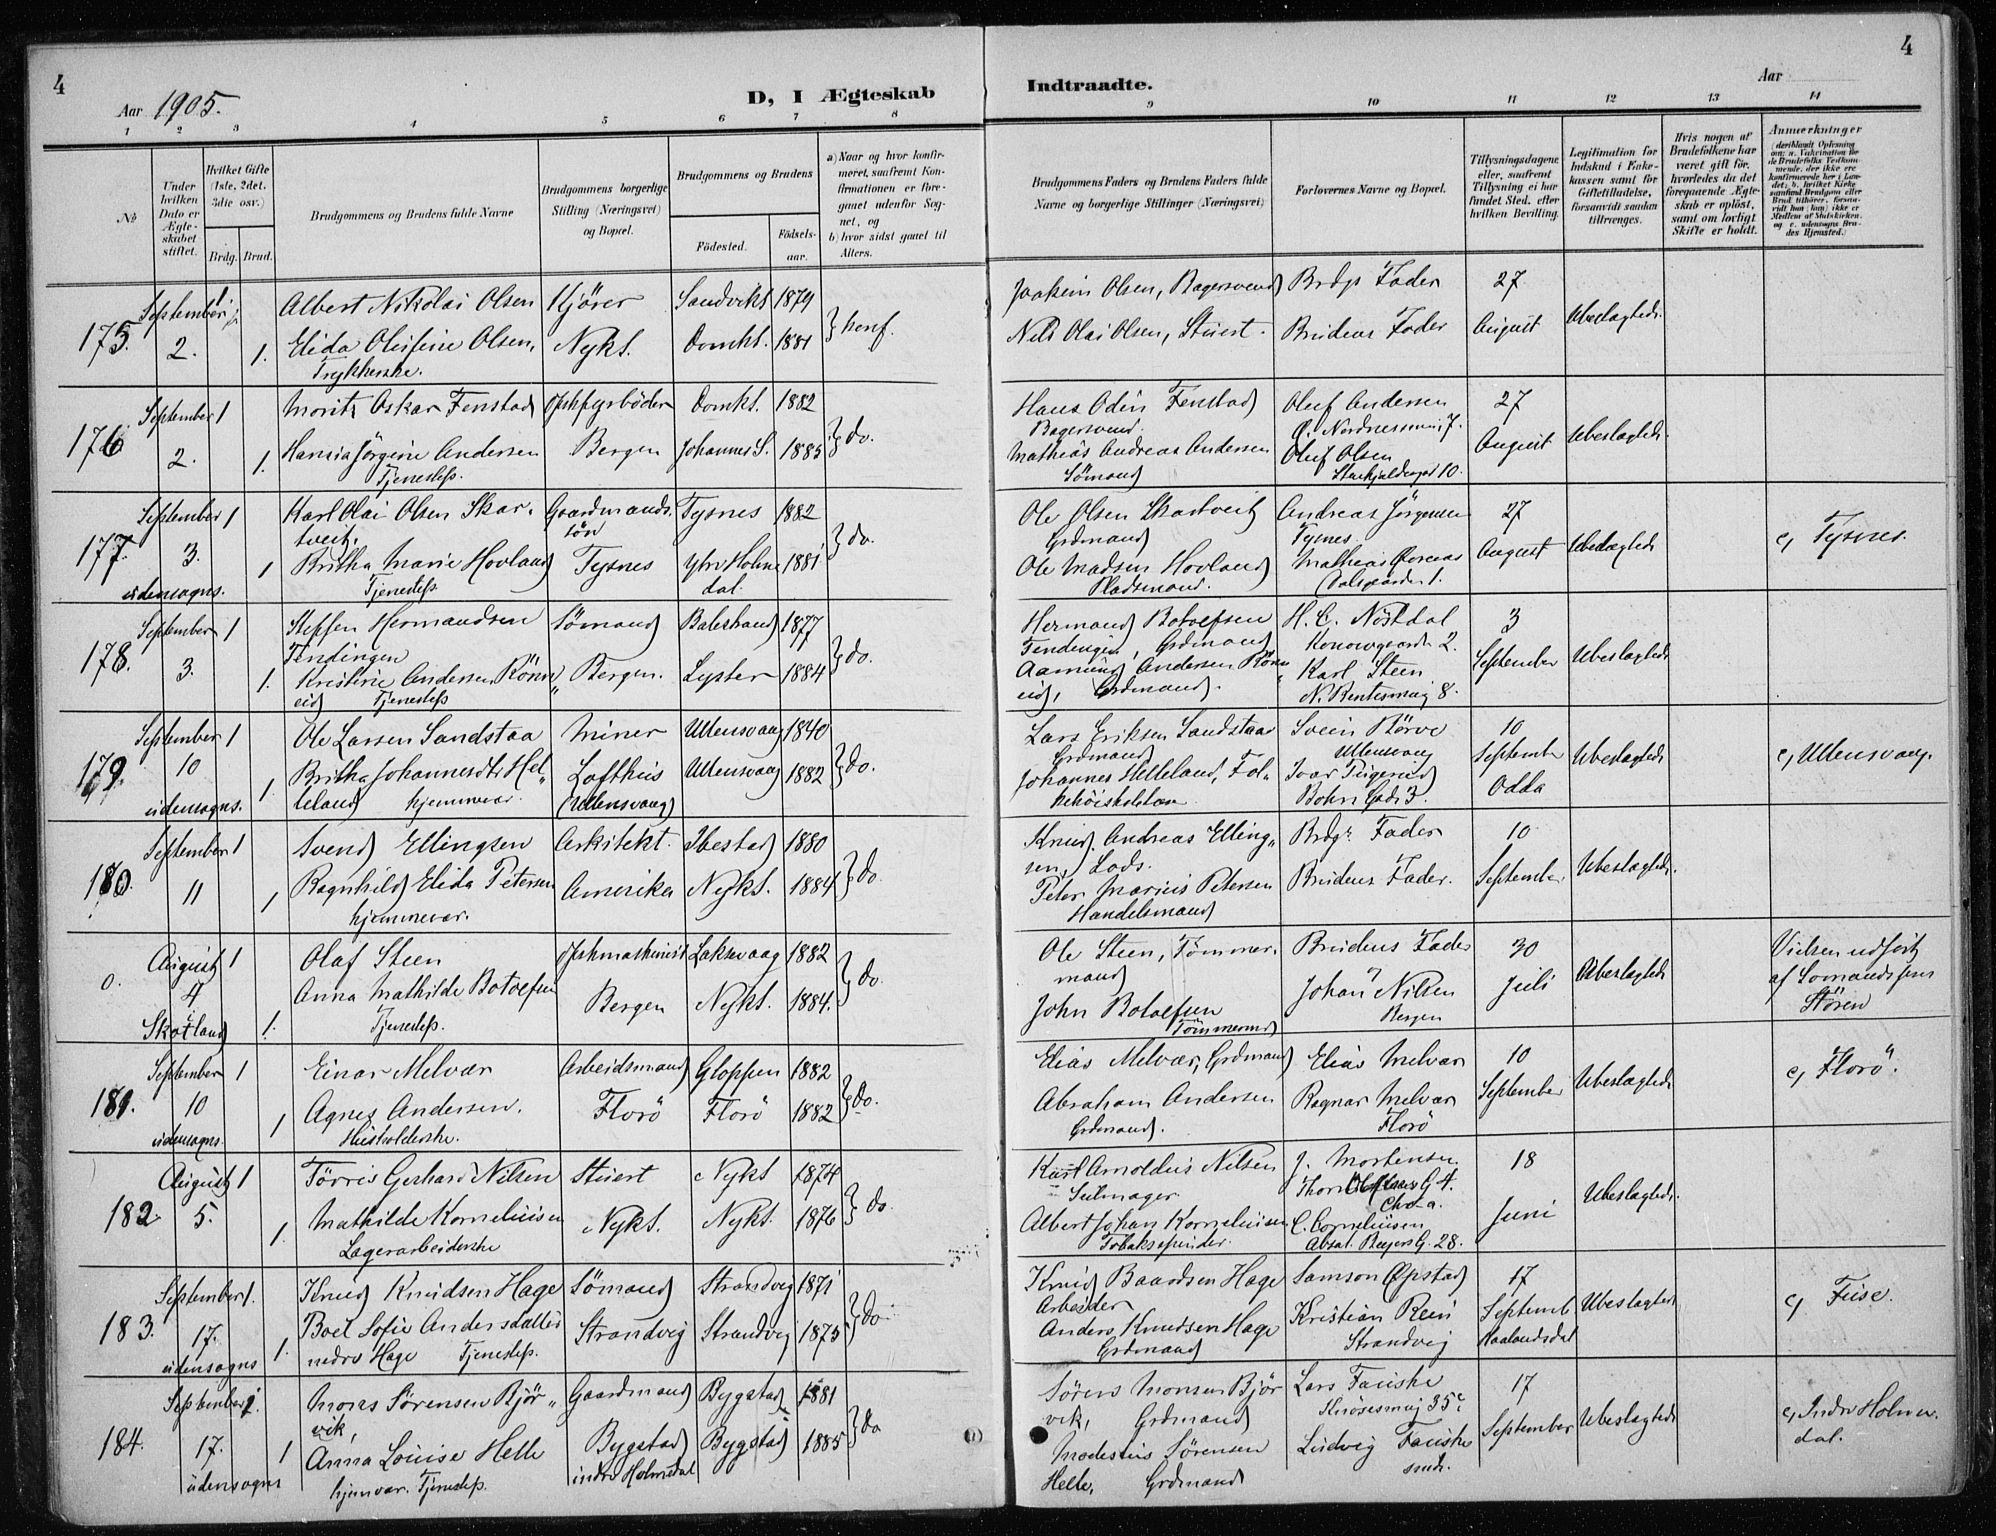 4
Aar 1905.
D, I Ægteskab Indtraadte.
Aar
4
1 2 3 4 5 6 7 8 9 10 11 12 13 14
No
Under hvilken Dato er Ægteskabet stiftet.
Hvilket Gifte (1ste, 2det, 3die osv.)
Brdg. Brud.
Brudgommens og Brudens fulde Navne
Brudgommens borgerlige Stilling (Næringsvei) og Bopæl.
Brudgommens og Brudens
Födested.
Födselsaar.
a) Naar og hvor konfirmeret, saafremt Konfirmationen er foregaaet udenfor Sognet, og
b) hvor sidst gaaet til Alters.
Brudgommens Faders og Brudens Faders fulde Navne og borgerlige Stillinger (Næringsvei)
Forlovernes Navne og Bopæl.
Tillysningsdagene eller, saafremt Tillysning ei har fundet Sted, efter hvilken Bevilling.
Legitimation for Indskud i Enkekassen samt for Giftetilladelse, forsaavidt saadan tiltrænges.
Hvis nogen af Brudefolkene har været gift før, hvorledes da det foregaaende Ægteskab er oplöst, samt om lovligt Skifte er holdt.
Anmærkninger
175. September 1 Albert Nikolai Olsen Kjörer Sandvikt 1879 Joakim Olsen, Bagersvend Brdgs Fader 27
2. 1. Elida Olufine Olsen, Nykt. Domkt. 1881 } konf. Nils Olai Olsen, Stuert. Brudens Fader August Ubeslægtede.
Trykkerske.
176 September 1 Moritz Oskar Fenstad Dpskfyrböder Domkt. 1882 Hans Odin Fenstad Oluf Andersen 27
Bagersvend. Ö. Nordnessmug 7.
2. 1. Hansia Jörgine Andersen Bergen Johannes S. 1885 } do. Mathias Andreas Andersen Oluf Olsen August Ubeslægtede.
Tjenestep. Sömand 10.
177. September 1 Karl Olai Olsen Skartveit, Gaardmandssön Tysnes 1882 Ole Olsen Skartveit Andreas Jörgensen 27
Grdmand Tysnes.
3. 1 Britha Marie Hovland Tysnes Ytre Holmedal. 1881 } do. Ole Madsen Hovland Mathias August Ubeslægtede c, Tysnes.
udensogns. Tjenestep. Pladsmand. 1.
178. September 1 Steffen Hermandsen Sömand Balestrand 1877 Hermand Botolfsen H. C. Nöstdal 3
Tendingen Tendingen, Grdmand Konowgaarden 2.
3. 1. Kristine Andersen Rönneid Bergen. Lyster 1884 } do. Aamund Andersen Rönneid, Karl Steen September Ubeslægtede
Tjenestep Grdmand. N. Bentesmug 8.
179. September 1 Ole Larsen Sandstaa Miner Ullensvang 1840 Lars Eriksen Sandstaa Svein Börve 10
Grdmand Ullensvang
10 1 Britha Johannesdtr Helleland Lofthus Ullensvang 1882 } do. Johannes Helleland, Ivar September Ubeslægtede c, Ullensvang.
udensogns. hjemmevær. (Ullensvang) 3. Odda
180. September 1 Svend Ellingsen Arkitekt. Ibestad 1880 Knud Andreas Ellingsen, Lods. Brdgs Fader 10
11 1 Ragnhild Elida Petersen Amerika Nykt. 1884 } do. Peter Marius Petersen Brudens Fader. September Ubeslægtede.
hjemmevær. Handelsmand
0. August 1 Olaf Steen Dpskmaskinist Laksevaag 1882 Ole Steen, Tömmermand Brudens Fader 30 Vielsen udfört
4 Anna Mathilde Botolfsen Bergen Nykt. 1884. } do. John Botolfsen Johan Nilsen Juli Ubeslægtede af Sömandsprest
Skotland 1. Tjenestep. Tömmermd Bergen Stören
181. September 1 Einar Melvær Arbeidsmand Gloppen 1882 Elias Melvær, Grdmand Elias Melvær 10 c, Florö.
10 1 Agnes Andersen. Florö Florö 1882 } do. Abraham Andersen Ragnar Melvær September Ubeslægtede
udensogns. Husholderske. Grdmand. Florö
182 August 1 Törris Gerhard Nilsen Stuert Nykt 1874 Karl Arnoldus Nilsen J. Mortensen 18
Seilmager
5. 1. Mathilde Korneliusen Nykt. Nykt. 1876 } do Albert Johan Korneliusen C. Corneliusen Juni Ubeslægtede.
Lagerarbeiderske Tobakspinder. Absal. Beyers G. 28.
183. September 1. Knud Knudsen Hage Sömand Strandvig 1871 Knud Baardsen Hage Samson Öpstad 17
Arbeider
17. 1. Boel Sofie Andersdatter Strandvig Strandvig 1875 } do. Anders Knudsen Hage Kristian Rein Septemb Ubeslægtede c, Fuse.
udensogns nedre Hage Tjenestep. Grdmand Strandvig Haalandsdal
184. September 1. Mons Sörensen Björvik, Gaardmand Bygstad 1881 Sören Monsen Björvik, Grdmand Lars Fauske 17
35c
17. 1 Anna Louise Helle Bygstad Bygstad 1885 } do Modestus Sörensen Ludvig Fauske September Ubeslægtede c, Indre Holmedal.
udensogns hjemvær. Tjenestep. indre Holmedal Helle, Grdmand smds.